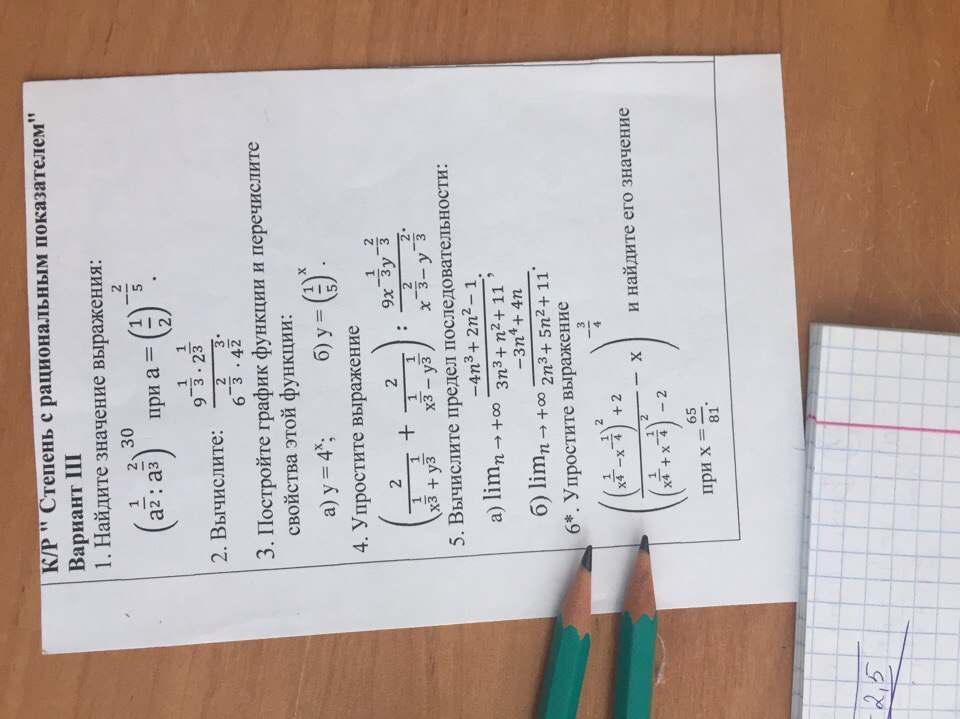 К/Р " Степень с рациональным показателем"
Вариант III
1. Найдите значение выражения:
(a^(1/2) : a^(2/3))^30 при a = (1/2)^(-2/5) .
2. Вычислите: (9^(-1/3) · 2^(1/3)) / (6^(-2/3) · 4^(3/2)) .
3. Постройте график функции и перечислите
свойства этой функции:
а) y = 4^x; б) y = (1/5)^x .
4. Упростите выражение
(2/(x^(1/3) + y^(1/3)) + 2/(x^(1/3) − y^(1/3))) : (9x^(-1/3) y^(-2/3))/(x^(-2/3) − y^(-2/3)) .
5. Вычислите предел последовательности:
а) lim n→+∞ (−4n³ + 2n² − 1)/(3n³ + n² + 11) ,
б) lim n→+∞ (−3n⁴ + 4n)/(2n³ + 5n² + 11) .
6*. Упростите выражение
(((x^(1/4) − x^(-1/4))² + 2)/((x^(1/4) + x^(-1/4))² − 2) − x)^(-3/4) и найдите его значение
при x = 65/81.
2,5